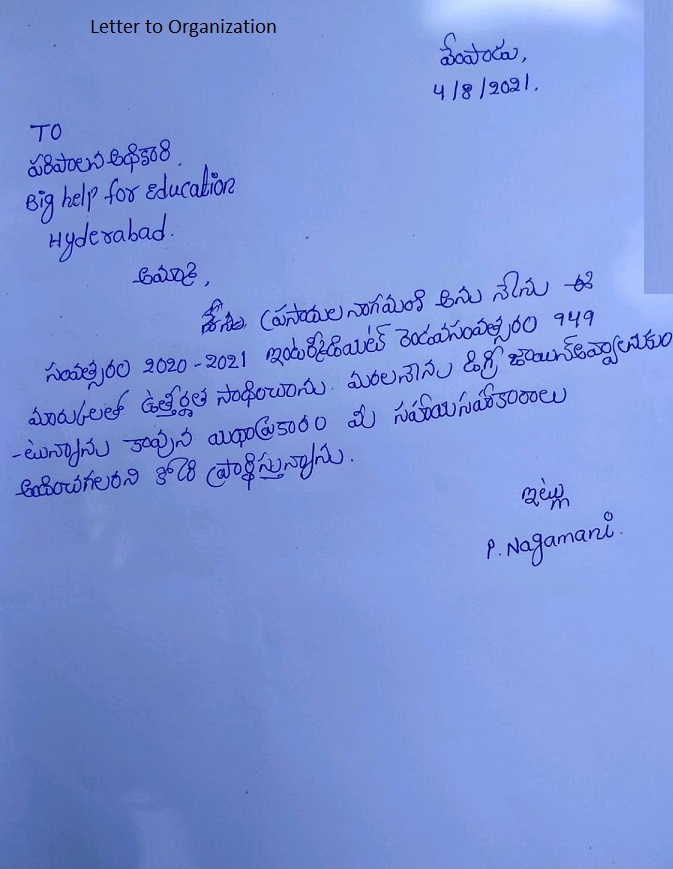 Letter to Organization
వేంపాడు,
4/8/2021.
TO
పరిపాలన అధికారి.
Big help for Education
Hyderabad.
అమ్మా,
ప్రసాదుల నాగమణి అను నేను ఈ
సంవత్సరం 2020-2021 ఇంటర్మీడియెట్ రెండవసంవత్సరం 949
మారుకులతో ఉత్తీర్ణత సాధించాను. మరల నేను డిగ్రీ జాయిన్అవ్వాలనుకుం
-టున్నాను కావున యథాప్రకారం మీ సహాయసహకారాలు
అందించగలరని కోరి ప్రార్థిస్తున్నాను.
ఇట్లు
P. Nagamani.